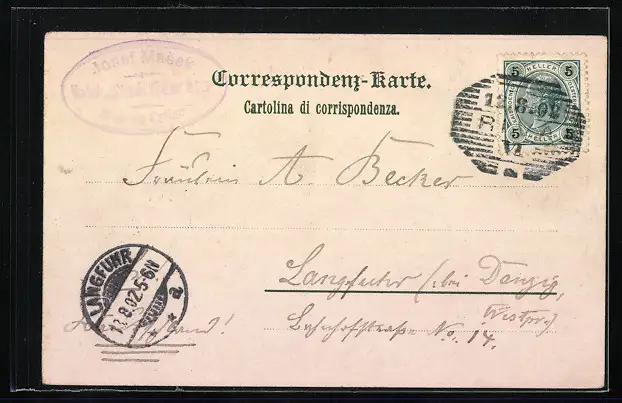 Josef Mašek
Correspondenz-Karte.
Cartolina di corrispondenza.
5 HELLER 5
5 HELLER 5
12.8.02
VI
Fräulein A. Becker
Langfuhr (bei Danzig,
Westpr.)
Bahnhofstraße No. 14.
LANGFUHR
13.8.02.5-6N
* a